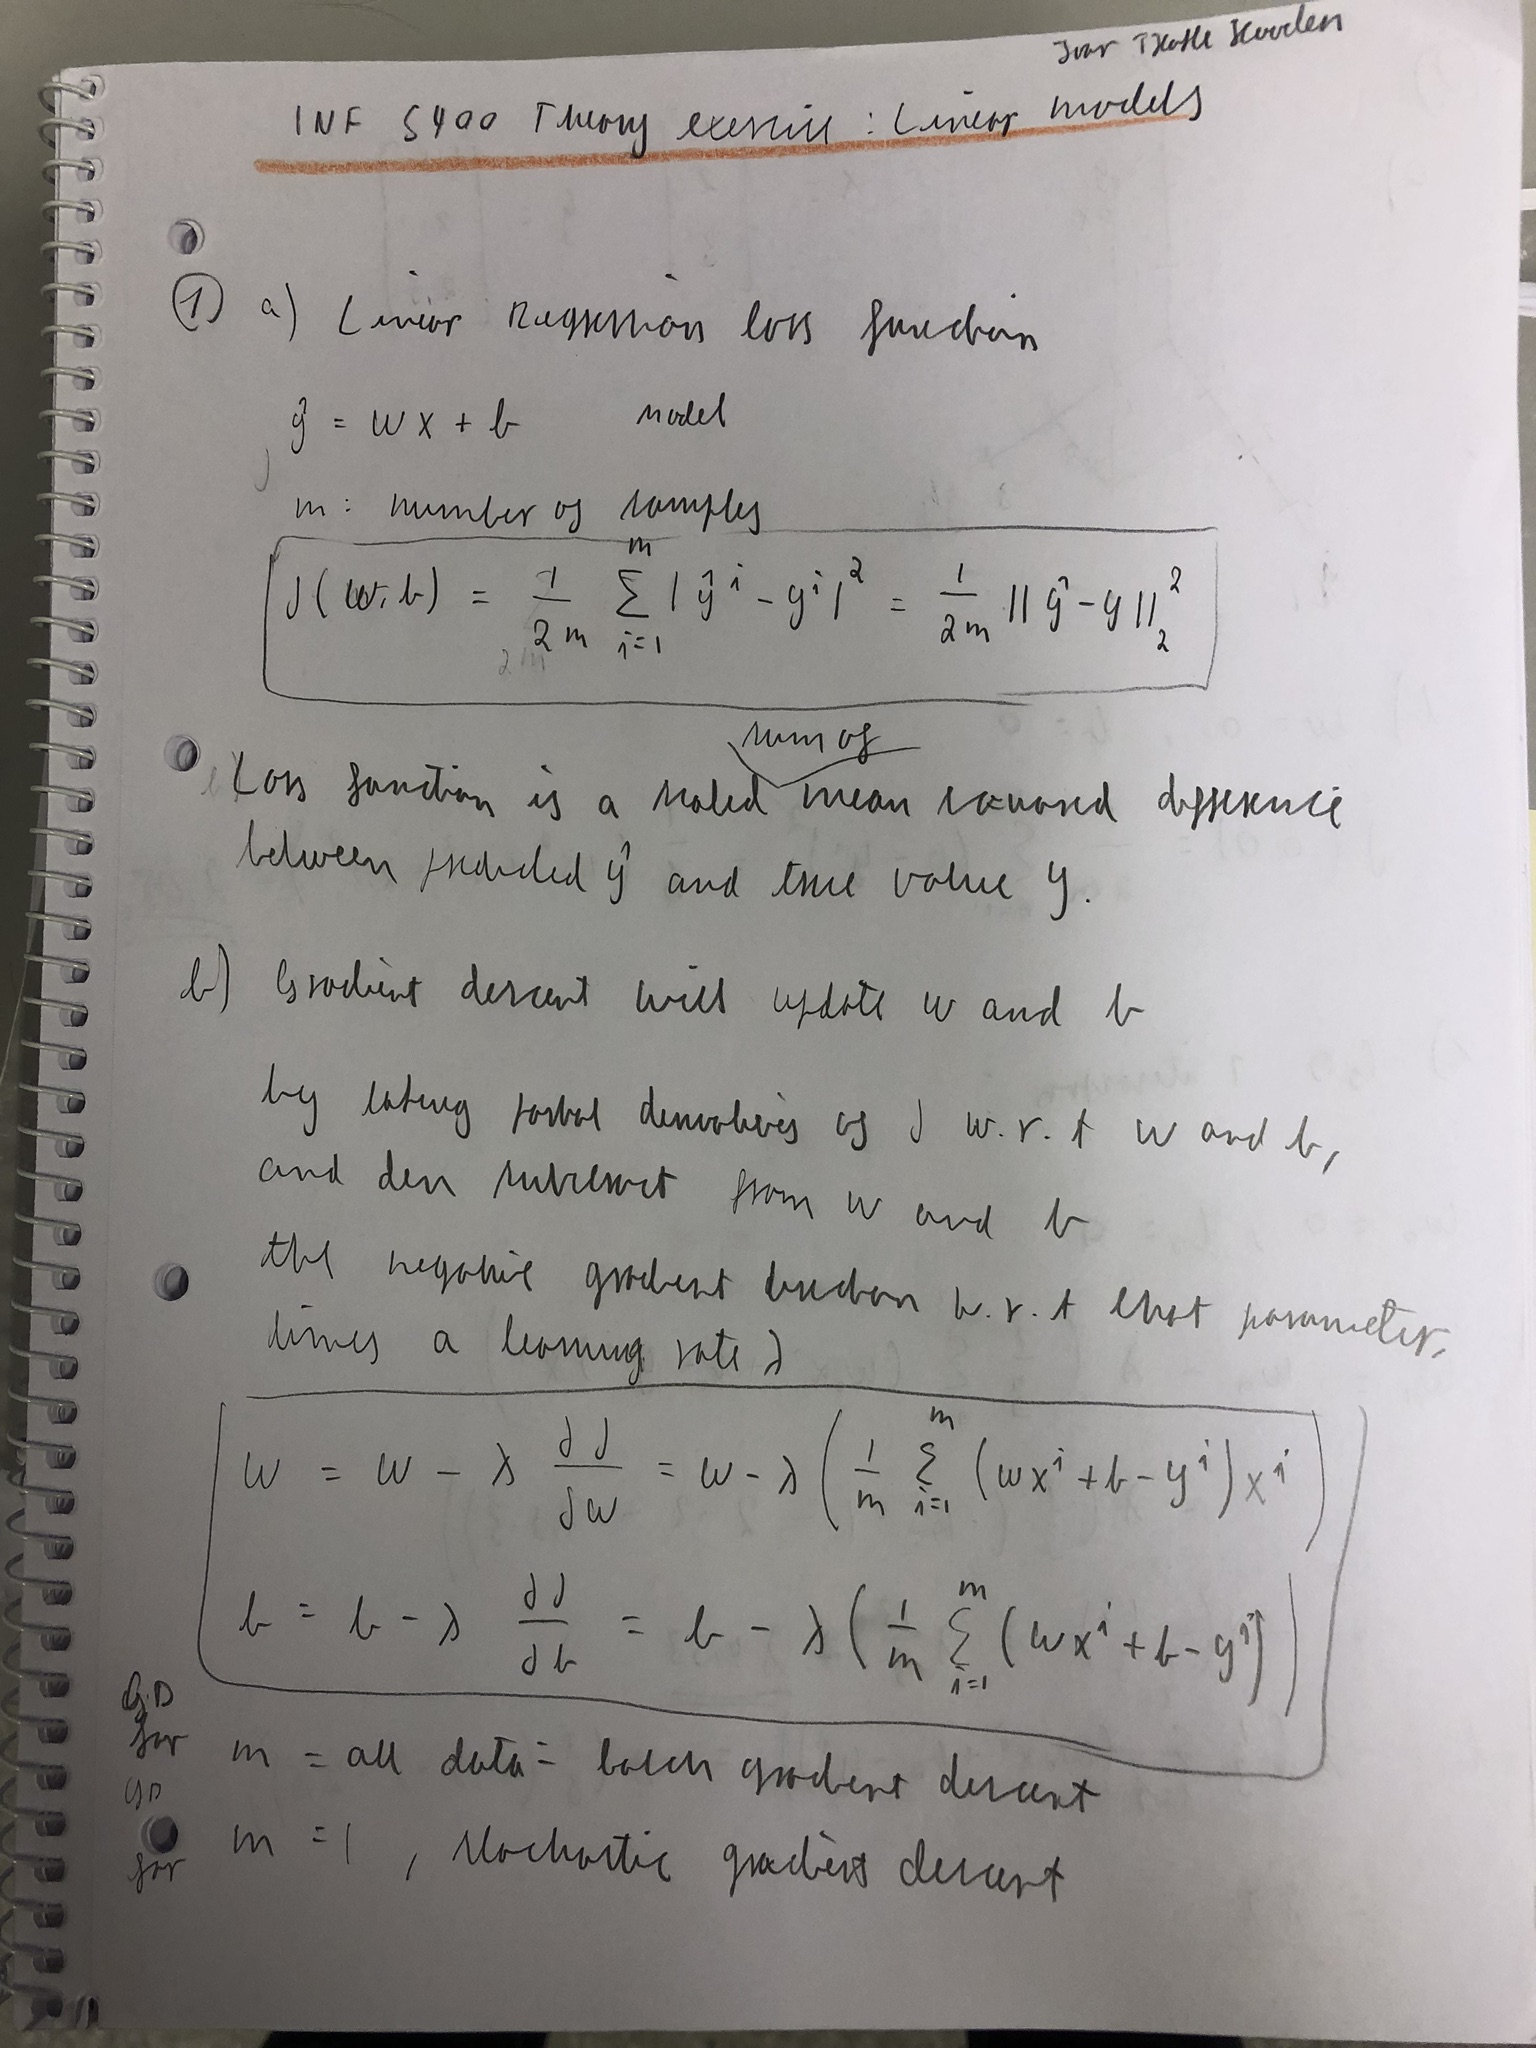 INF 5400 Theory exercise: Linear models
① a) Linear Regression loss function
ŷ = wx + b model
m: number of samples
J(w,b) = 1/2m Σ_{i=1}^{m} |ŷ^i - y^i|^2 = 1/2m ||ŷ - y||_2^2
2m
sum of
Loss function is a scaled mean squared difference
between predicted ŷ and true value y.
b) Gradient descent will update w and b
by taking partial derivatives of J w.r.t w and b,
and den subtract from w and b
the negative gradient direction w.r.t that parameter,
times a learning rate λ
w = w - λ ∂J/∂w = w - λ (1/m Σ_{i=1}^{m} (wx^i + b - y^i) x^i)
b = b - λ ∂J/∂b = b - λ (1/m Σ_{i=1}^{m} (wx^i + b - y^i))
GD for m = all data = batch gradient descent
GD for m = 1, stochastic gradient descent